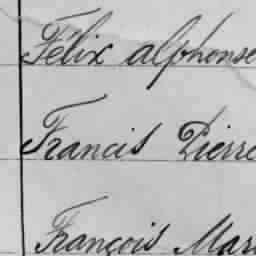 Félix alphonse
Francis Pierre
François Mar